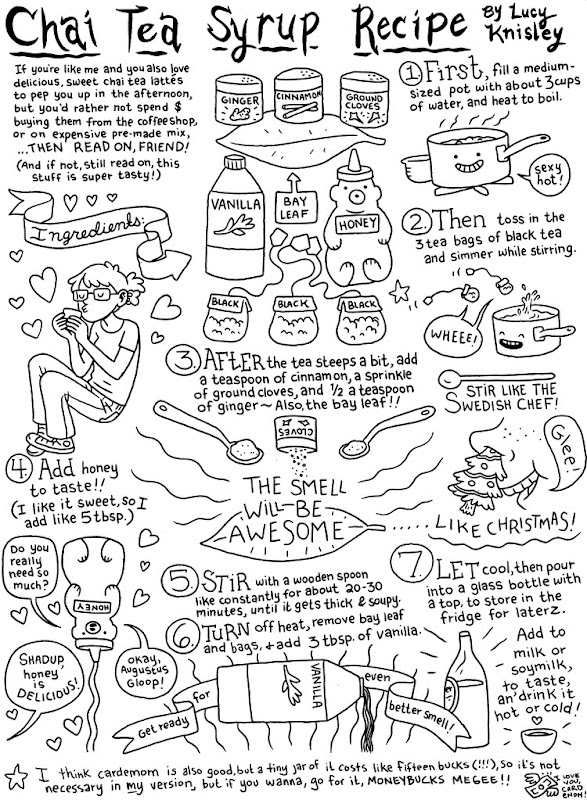 Chai Tea Syrup Recipe
By Lucy
Knisley
If you're like me and you also love
delicious, sweet chai tea lattés
to pep you up in the afternoon,
but you'd rather not spend $
buying them from the coffee shop,
or on expensive pre-made mix,
...THEN READ ON, FRIEND!
(And if not, still read on, this
stuff is super tasty!)
Ingredients:
GINGER
CINNAMON
GROUND
CLOVES
VANILLA
BAY
LEAF
HONEY
BLACK
BLACK
BLACK
1 First, fill a medium-
sized pot with about 3 cups
of water, and heat to boil.
sexy
hot!
2. Then toss in the
3 tea bags of black tea
and simmer while stirring.
WHEEE!
STIR LIKE THE
SWEDISH CHEF!
3. AFTER the tea steeps a bit, add
a teaspoon of cinnamon, a sprinkle
of ground cloves, and 1/2 a teaspoon
of ginger ~ Also, the bay leaf!!
CLOVES
THE SMELL
WILL BE
AWESOME
.....LIKE CHRISTMAS!
Glee.
4. Add honey
to taste!!
(I like it sweet, so I
add like 5 tbsp.)
Do you
really
need so
much?
HONEY
SHADUP,
honey
is
DELICIOUS!
okay,
Augustus
Gloop!
5. STIR with a wooden spoon
like constantly for about 20-30
minutes, until it gets thick & soupy.
6. TURN off heat, remove bay leaf
and bags, + add 3 tbsp. of vanilla.
Get ready
for
VANILLA
even
better smell!
7. LET cool, then pour
into a glass bottle with
a top, to store in the
fridge for laterz.
Add to
milk or
soymilk,
to taste,
an' drink it
hot or cold!
I think cardemom is also good, but a tiny jar of it costs like fifteen bucks (!!!), so it's not
necessary in my version, but if you wanna, go for it, MONEYBUCKS MEGEE!!
I LOVE
YOU,
CARD
EMOM!